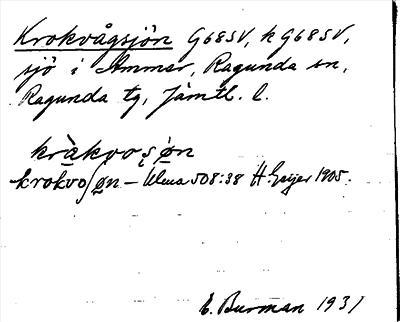 Krokvågsjön G68SV, k G68SV,
sjö i Ammer, Ragunda sn,
Ragunda tg, Jämtl. l.
kråkvosøn
krokvoʃøn – Ulma 508:38 H. Geijer 1905.
E. Burman 1931